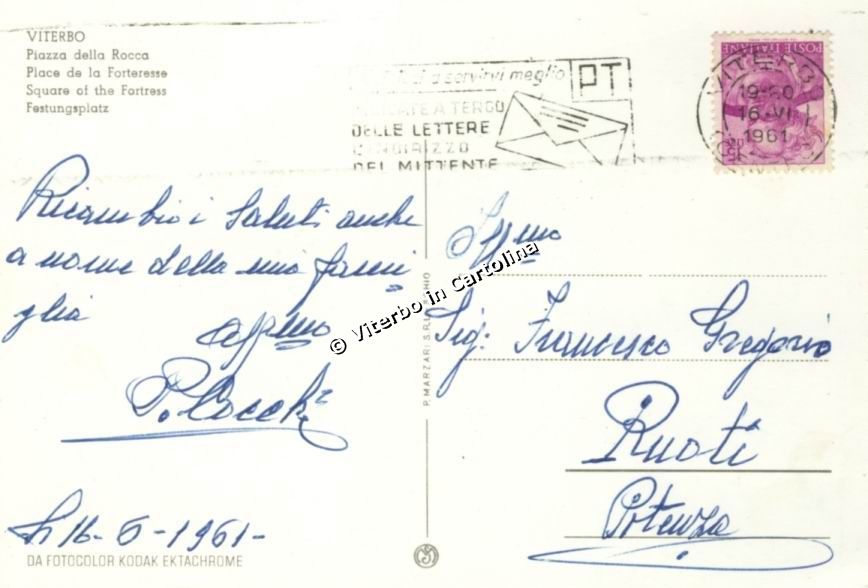 VITERBO
Piazza della Rocca
Place de la Forteresse
Square of the Fortress
Festungsplatz
a servirvi meglio
PT
A TERGO
DELLE LETTERE
L'INDIRIZZO
DEL MITTENTE
POSTE ITALIANE
VITERBO
19-20
16-VI
1961
Ricambio i saluti anche
a nome della mia fami
glia
aff.mo
P. Cocchi
lì 16-6-1961-
DA FOTOCOLOR KODAK EKTACHROME
P. MARZARI S.R.L.
© Viterbo in Cartolina
Sig: Francesco Gregorio
Ruoti
Potenza